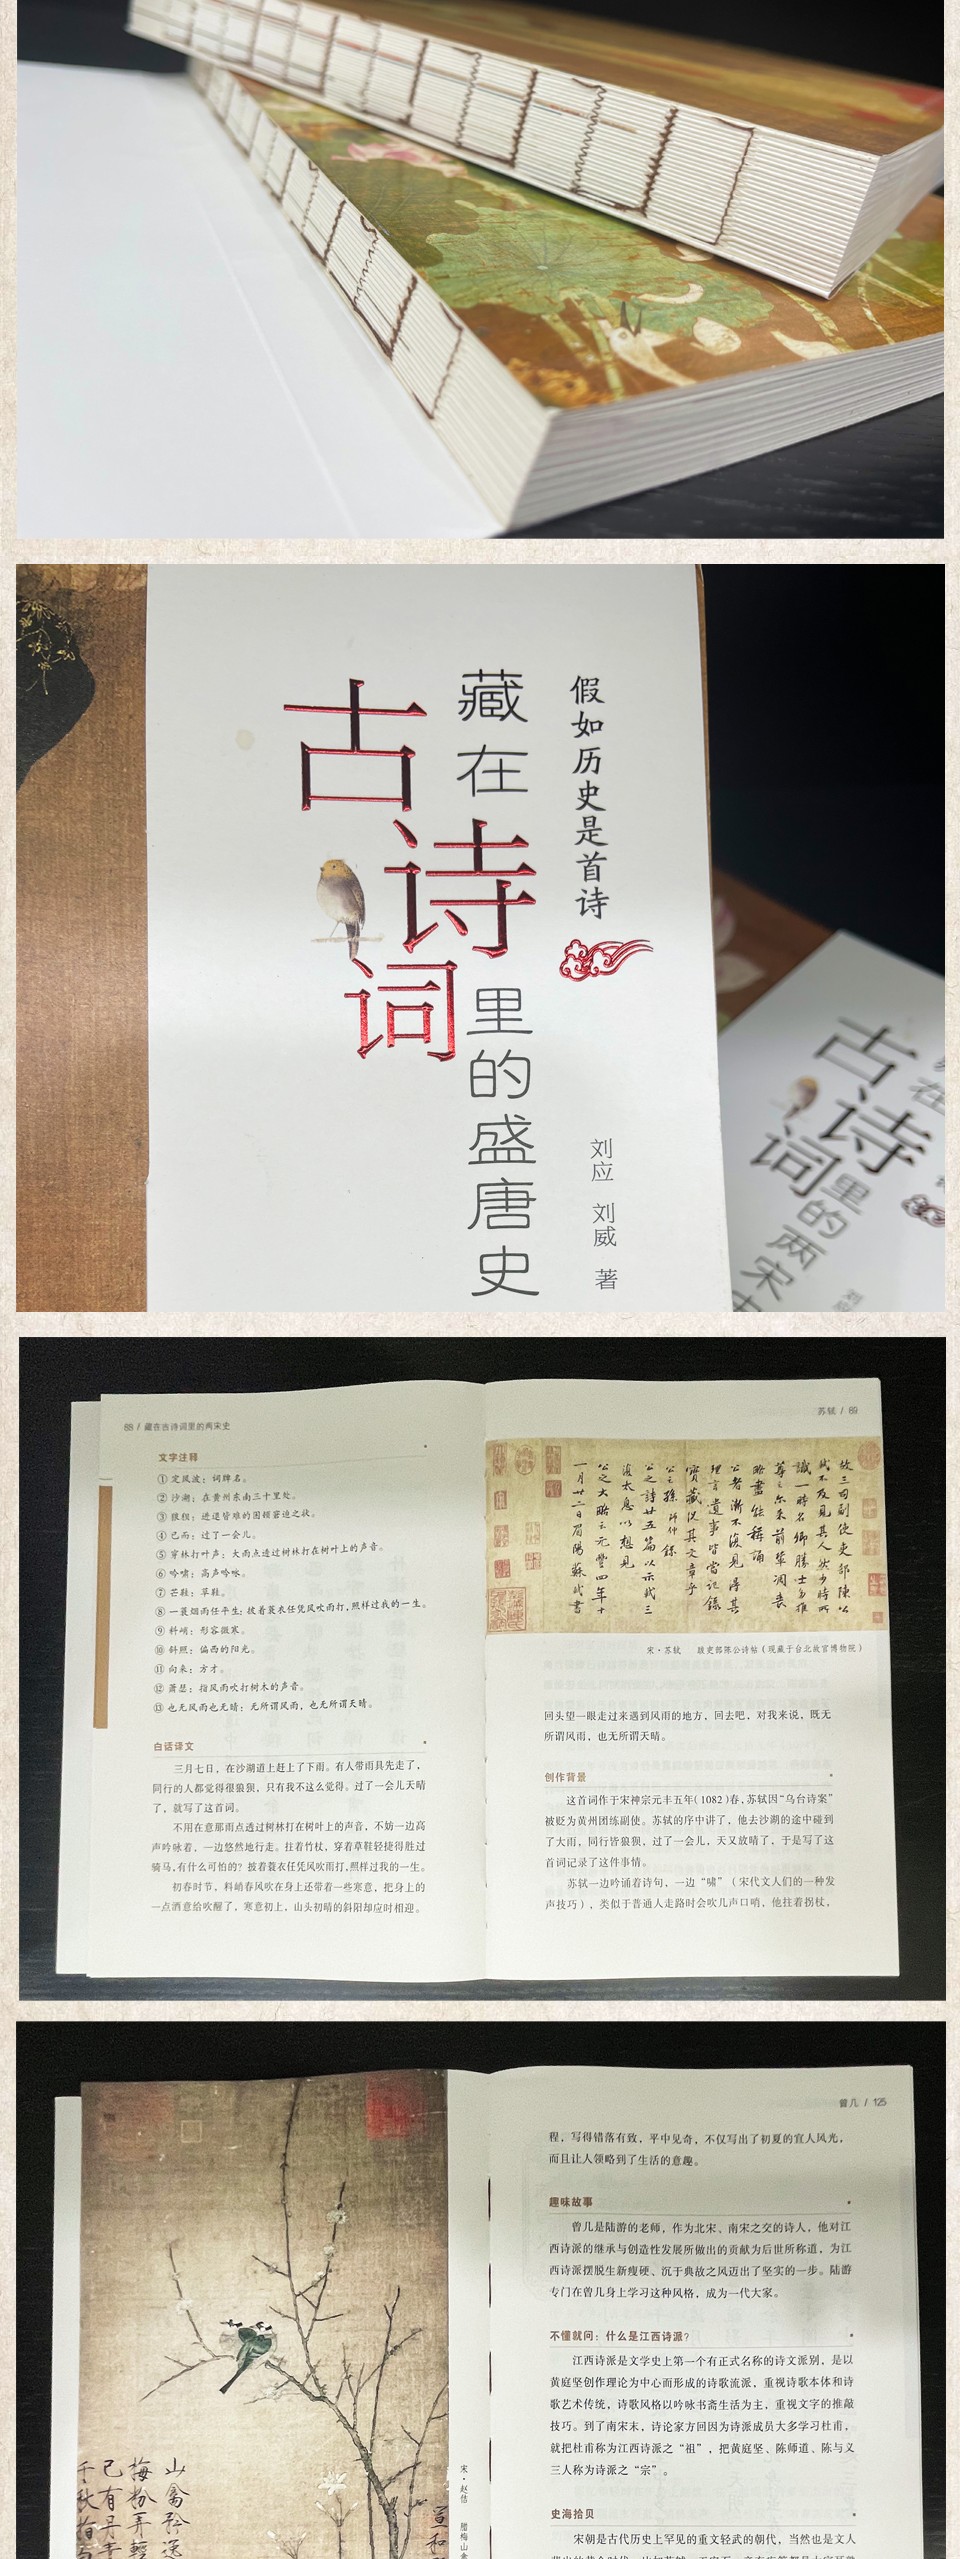 假如历史是首诗
藏在
古诗词
里的盛唐史
刘应 刘威 著
古诗词
里的两宋
88 / 藏在古诗词里的两宋史
文字注释
① 定风波：词牌名。
② 沙湖：在黄州东南三十里处。
③ 狼狈：进退皆难的困顿窘迫之状。
④ 已而：过了一会儿。
⑤ 穿林打叶声：大雨点透过树林打在树叶上的声音。
⑥ 吟啸：高声吟咏。
⑦ 芒鞋：草鞋。
⑧ 一蓑烟雨任平生：披着蓑衣任凭风吹雨打，照样过我的一生。
⑨ 料峭：形容微寒。
⑩ 斜照：偏西的阳光。
⑪ 向来：方才。
⑫ 萧瑟：指风雨吹打树木的声音。
⑬ 也无风雨也无晴：无所谓风雨，也无所谓天晴。
白话译文
三月七日，在沙湖道上赶上了下雨。有人带雨具先走了，
同行的人都觉得很狼狈，只有我不这么觉得。过了一会儿天晴
了，就写了这首词。
不用在意那雨点透过树林打在树叶上的声音，不妨一边高
声吟咏着，一边悠然地行走。拄着竹杖，穿着草鞋轻捷得胜过
骑马，有什么可怕的？披着蓑衣任凭风吹雨打，照样过我的一生。
初春时节，料峭春风吹在身上还带着一些寒意，把身上的
一点酒意给吹醒了，寒意初上，山头初晴的斜阳却应时相迎。
苏轼 / 89
故三司副使吏部陈公
轼不及见其人然少时所
识一时名卿胜士多推
尊之尔来前辈凋丧
略尽能称诵
公者渐不复见得其
理言遗事皆当记录
宝藏况其文章乎
公之孙师仲录
公之诗廿五篇以示轼三
复太息以想见
公之大略云元丰四年十
一月廿二日眉阳苏轼书
宋·苏轼 跋吏部陈公诗帖（现藏于台北故宫博物院）
回头望一眼走过来遇到风雨的地方，回去吧，对我来说，既无
所谓风雨，也无所谓天晴。
创作背景
这首词作于宋神宗元丰五年（1082）春，苏轼因“乌台诗案”
被贬为黄州团练副使。苏轼的序中讲了，他去沙湖的途中碰到
了大雨，同行皆狼狈，过了一会儿，天又放晴了，于是写了这
首词记录了这件事情。
苏轼一边吟诵着诗句，一边“啸”（宋代文人们的一种发
声技巧），类似于普通人走路时会吹几声口哨，他拄着拐杖，
山禽矜逸
梅粉弄轻
已有丹青
千秋指
宣和
宋·赵佶 腊梅山禽
曾几 / 125
程，写得错落有致，平中见奇，不仅写出了初夏的宜人风光，
而且让人领略到了生活的意趣。
趣味故事
曾几是陆游的老师，作为北宋、南宋之交的诗人，他对江
西诗派的继承与创造性发展所做出的贡献为后世所称道，为江
西诗派摆脱生新瘦硬、沉于典故之风迈出了坚实的一步。陆游
专门在曾几身上学习这种风格，成为一代大家。
不懂就问：什么是江西诗派？
江西诗派是文学史上第一个有正式名称的诗文派别，是以
黄庭坚创作理论为中心而形成的诗歌流派，重视诗歌本体和诗
歌艺术传统，诗歌风格以吟咏书斋生活为主，重视文字的推敲
技巧。到了南宋末，诗论家方回因为诗派成员大多学习杜甫，
就把杜甫称为江西诗派之“祖”，把黄庭坚、陈师道、陈与义
三人称为诗派之“宗”。
史海拾贝
宋朝是古代历史上罕见的重文轻武的朝代，当然也是文人